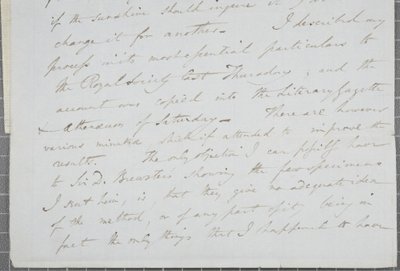 if the sunshine should injure it I
change it for another. I described my
process in its most essential particulars to
the Royal Society last Thursday, and the
account was copied into the Literary Gazette
& Athenaeum of Saturday. There are however
various minutiae which if attended to improve the
result. The only objection I can possibly have
to Sir D. Brewster's showing the few specimens
I sent him, is, that they give no adequate idea
of the method, or of any part of it, being in
fact the only things that I happened to have